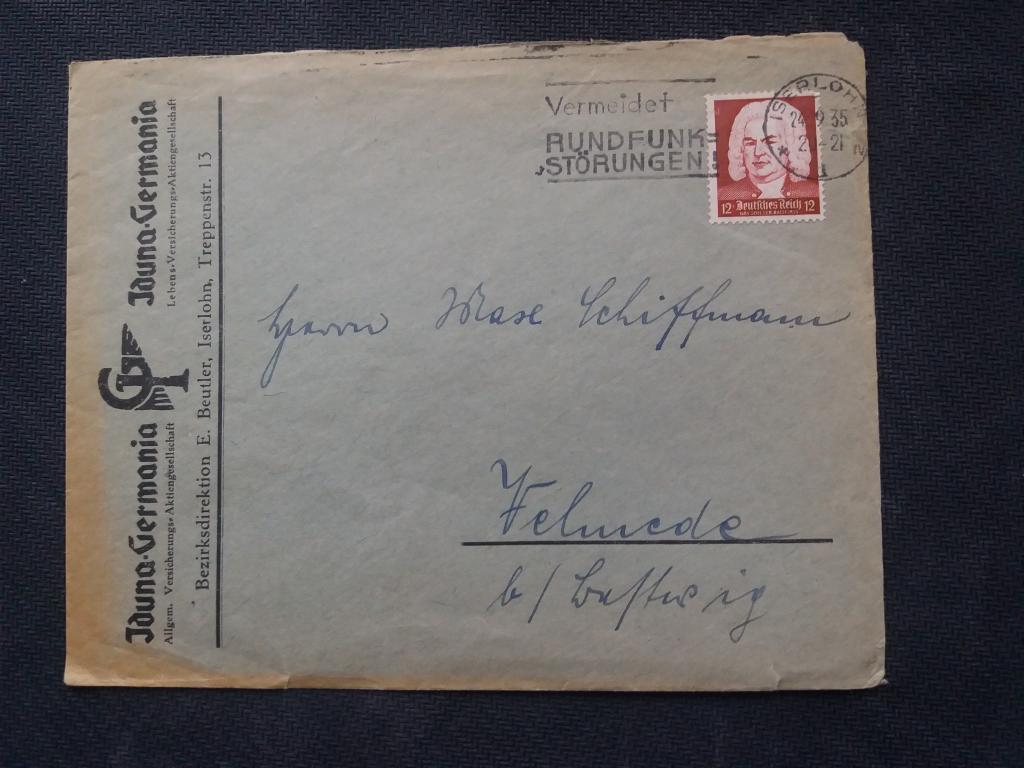 Iduna-Germania
Allgem. Versicherungs-Aktiengesellschaft
Iduna-Germania
Lebens-Versicherungs-Aktiengesellschaft
Bezirksdirektion E. Beutler, Iserlohn, Treppenstr. 13
Vermeidet
RUNDFUNK=
STÖRUNGEN!
ISERLOHN
24.9.35
12 Deutsches Reich 12
Herrn Maxe Schiffmann
Velmede
b/ Bestwig